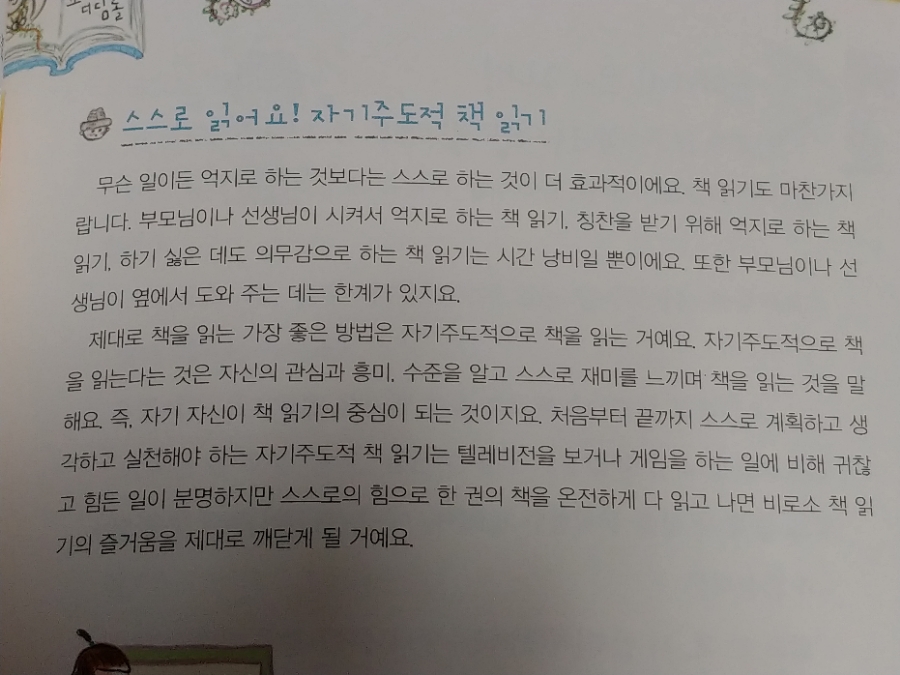 디딤돌
스스로 읽어요! 자기주도적 책 읽기
무슨 일이든 억지로 하는 것보다는 스스로 하는 것이 더 효과적이에요. 책 읽기도 마찬가지
랍니다. 부모님이나 선생님이 시켜서 억지로 하는 책 읽기, 칭찬을 받기 위해 억지로 하는 책
읽기, 하기 싫은 데도 의무감으로 하는 책 읽기는 시간 낭비일 뿐이에요. 또한 부모님이나 선
생님이 옆에서 도와 주는 데는 한계가 있지요.
제대로 책을 읽는 가장 좋은 방법은 자기주도적으로 책을 읽는 거예요. 자기주도적으로 책
을 읽는다는 것은 자신의 관심과 흥미, 수준을 알고 스스로 재미를 느끼며 책을 읽는 것을 말
해요. 즉, 자기 자신이 책 읽기의 중심이 되는 것이지요. 처음부터 끝까지 스스로 계획하고 생
각하고 실천해야 하는 자기주도적 책 읽기는 텔레비전을 보거나 게임을 하는 일에 비해 귀찮
고 힘든 일이 분명하지만 스스로의 힘으로 한 권의 책을 온전하게 다 읽고 나면 비로소 책 읽
기의 즐거움을 제대로 깨닫게 될 거예요.